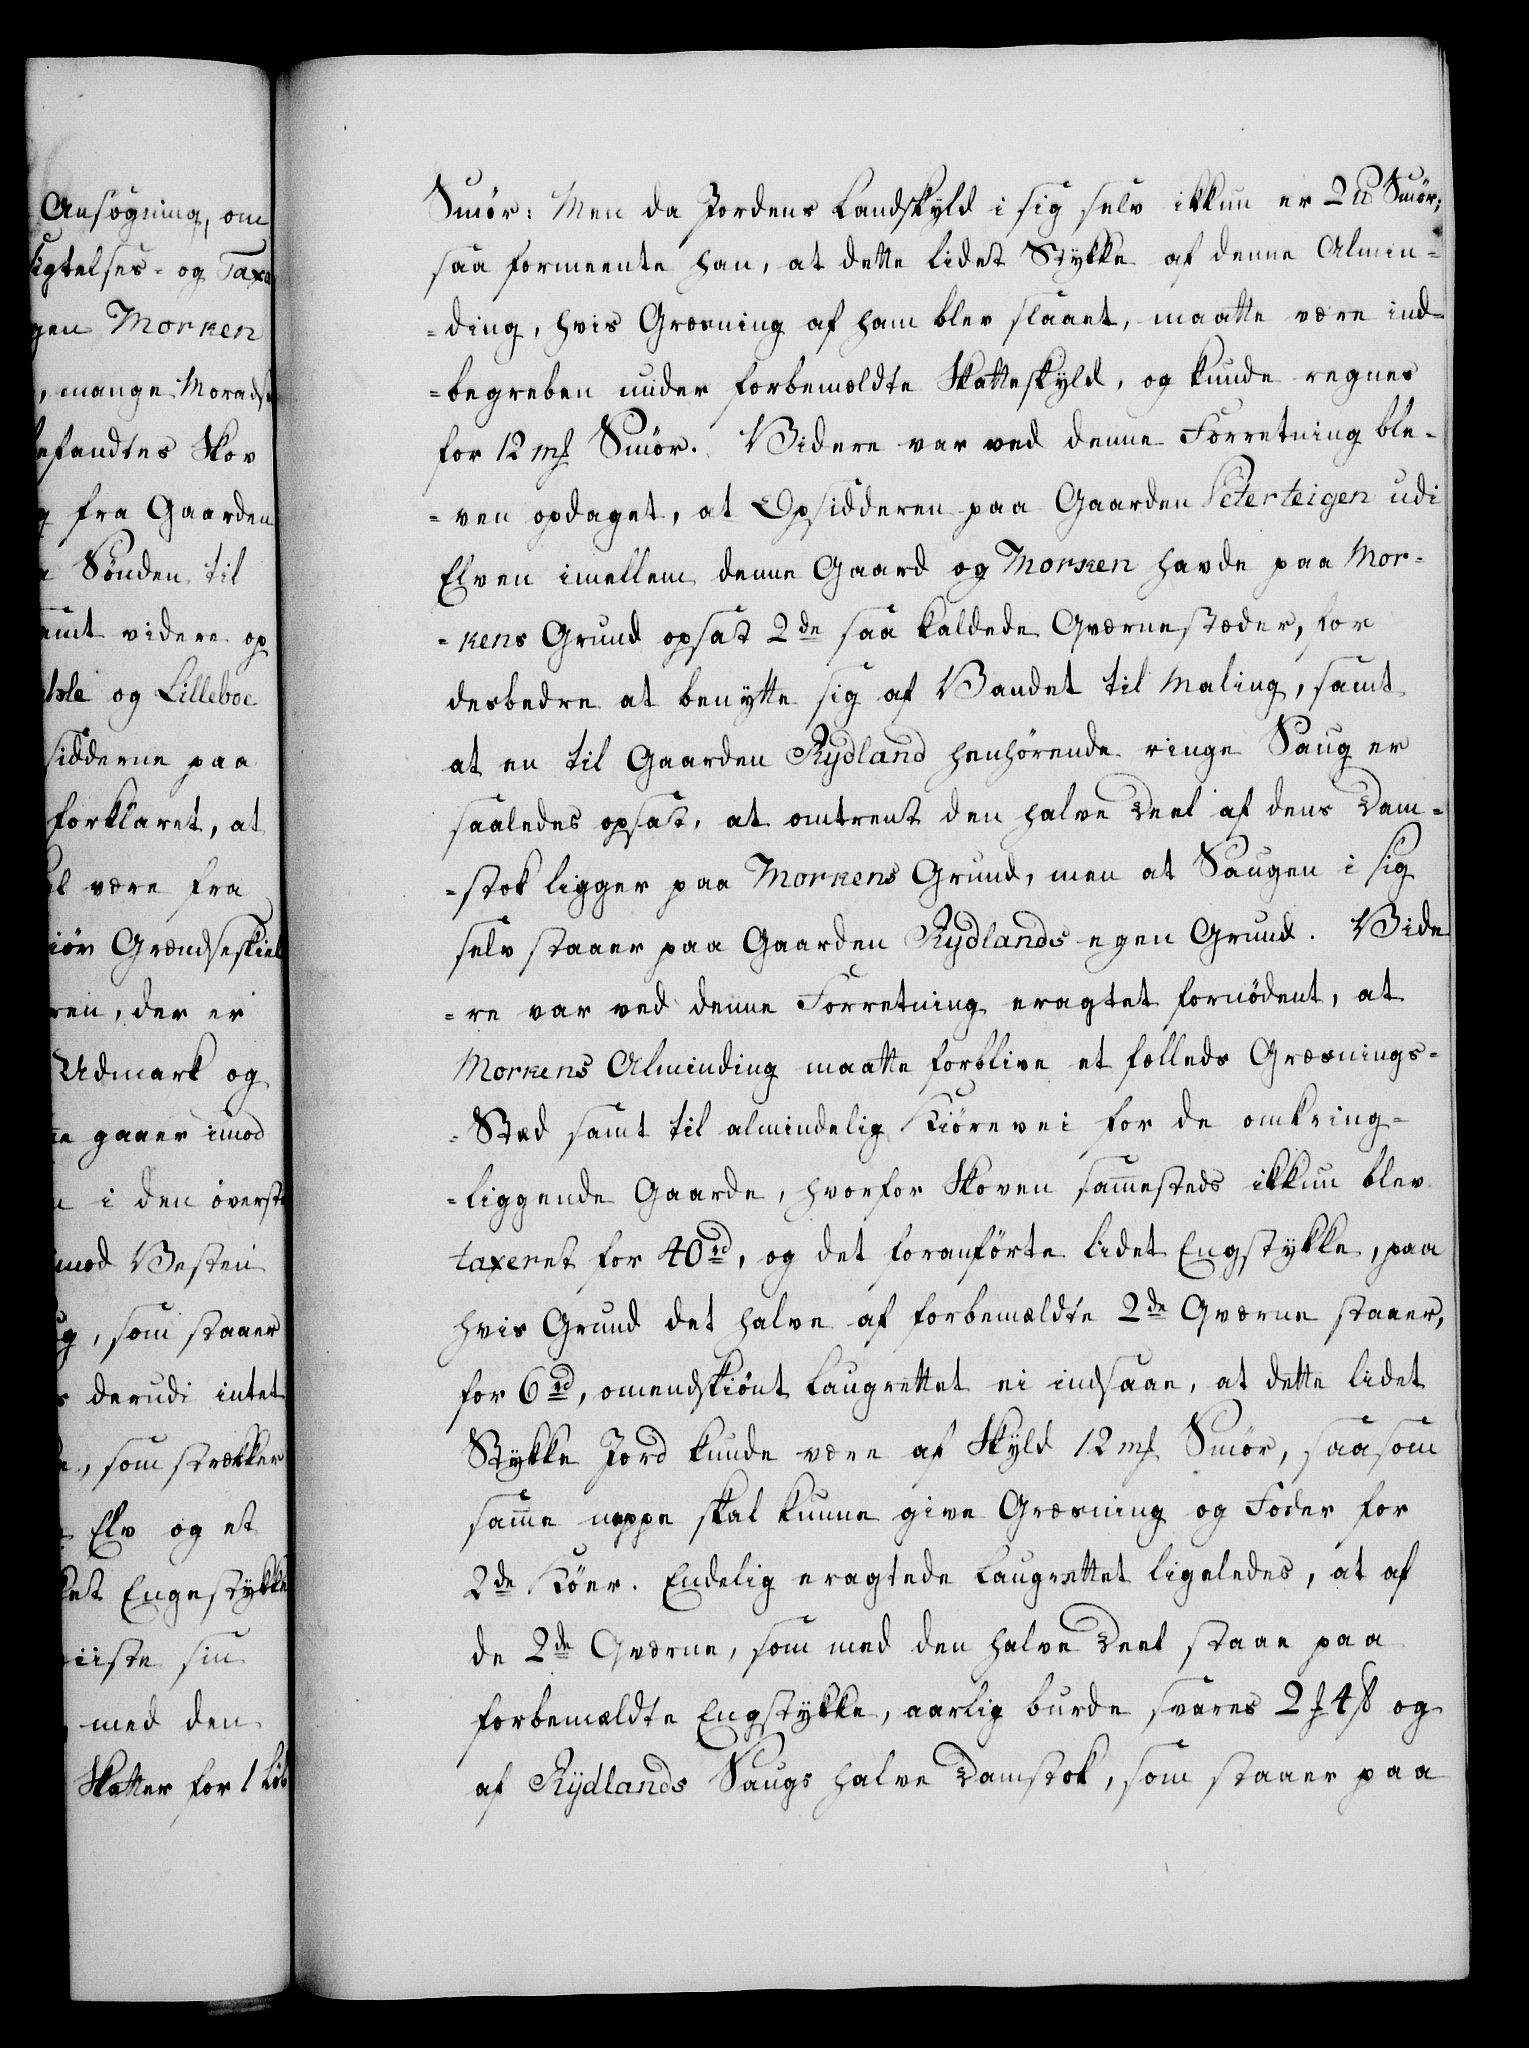 Ansøgning, om
sigtelses- og Taxa
gen Morken
, mange Morads
befandtes Skov
g fra Gaarden
Sønden til
samt videre op
og Lilleboe
sidderne paa
forklaret, at
være fra
Grændseskiel
ren, der er
Udmark og
gaaer imod
i den øverste
mod Vesten
, som staaer
derudi intet
, som strækker
Elv og et
Engestykke
viiste sin
med den
Skatter for 1 Løb
Smör: Men da Jordens Landskyld i sig selv ikkun er 2 ℔ Smör;
saa formeente han, at dette lidet Stykke af denne Almin-
-ding, hvis Græsning af ham blev slaaet, maatte være ind-
-begreben under forbemældte Skatteskyld, og kunde regnes
for 12 mk Smör. Videre var ved denne Forretning ble-
-ven opdaget, at Opsidderen paa Gaarden Peterteigen udi
Elven imellem denne Gaard og Morken havde paa Mor-
-kens Grund opsat 2de saa kaldede Qværnestæder, for
desbedre at benytte sig af Vandet til Maling, samt
at en til Gaarden Rydland henhörende ringe Saug er
saaledes opsat, at omtrent den halve Deel af dens Dam-
-stok ligger paa Morkens Grund, men at Saugen i sig
selv staaer paa Gaarden Rydlands egen Grund. Vide
-re var ved denne Forretning eragtet fornödent, at
Morkens Alminding maatte forblive et fælleds Græsnings-
-Stæd samt til almindelig Kiörevei for de omkring-
-liggende Gaarde, hvorfor Skoven sam̄esteds ikkun blev
taxeret for 40 rd, og det foranförte lidet Engstykke, paa
hvis Grund det halve af forbemældte 2de Qværne staaer,
for 6 rd, omendskiönt Laugrettet ei indsaae, at dette lidet
Stykke Jord kunde være af Skyld 12 mk Smör, saasom
sam̄e neppe skal kunne give Græsning og Foder for
2de Köer. Endelig eragtede Laugrettet ligeledes, at af
de 2de Qværne, som med den halve Deel staae paa
forbemældte Engstykke, aarlig burde svares 2 ƒ 4 ß og
af Rydlands Saugs halve Damstok, som staaer paa